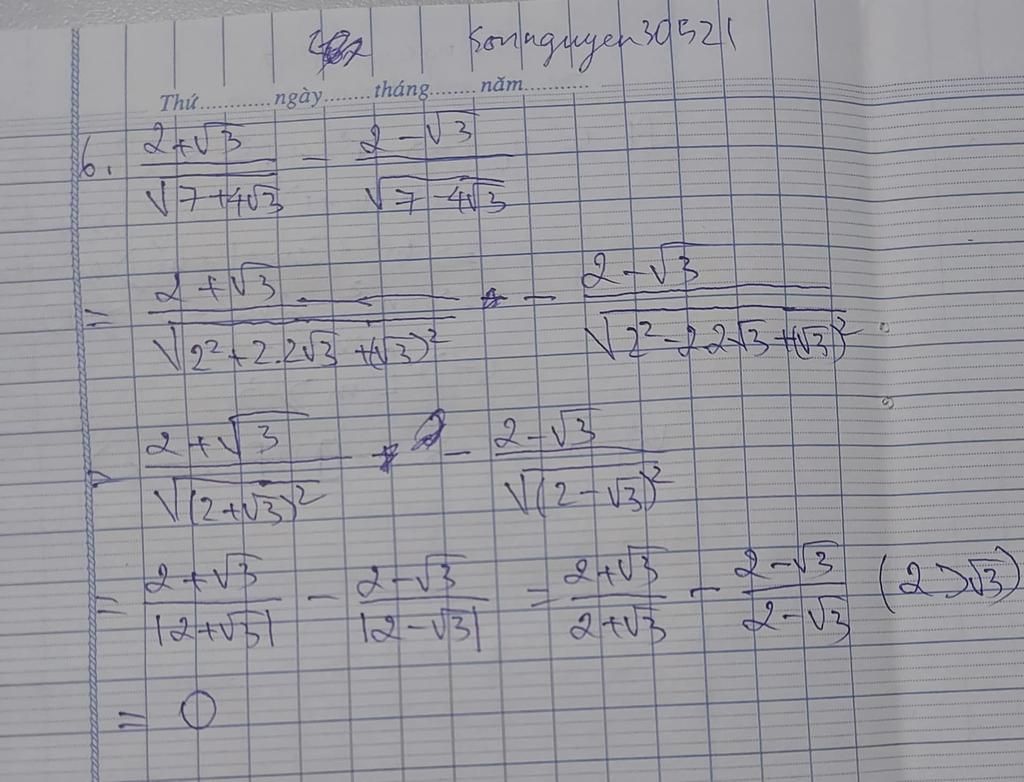 Sonnguyen30521
Thứ............ngày........tháng........năm............
6. (2+√3)/√(7+4√3) - (2-√3)/√(7-4√3)
= (2+√3)/√(2²+2.2√3+(√3)²) - (2-√3)/√(2²-2.2√3+(√3)²)
= (2+√3)/√((2+√3)²) - (2-√3)/√((2-√3)²)
= (2+√3)/|2+√3| - (2-√3)/|2-√3| = (2+√3)/(2+√3) - (2-√3)/(2-√3) (2>√3)
= 0